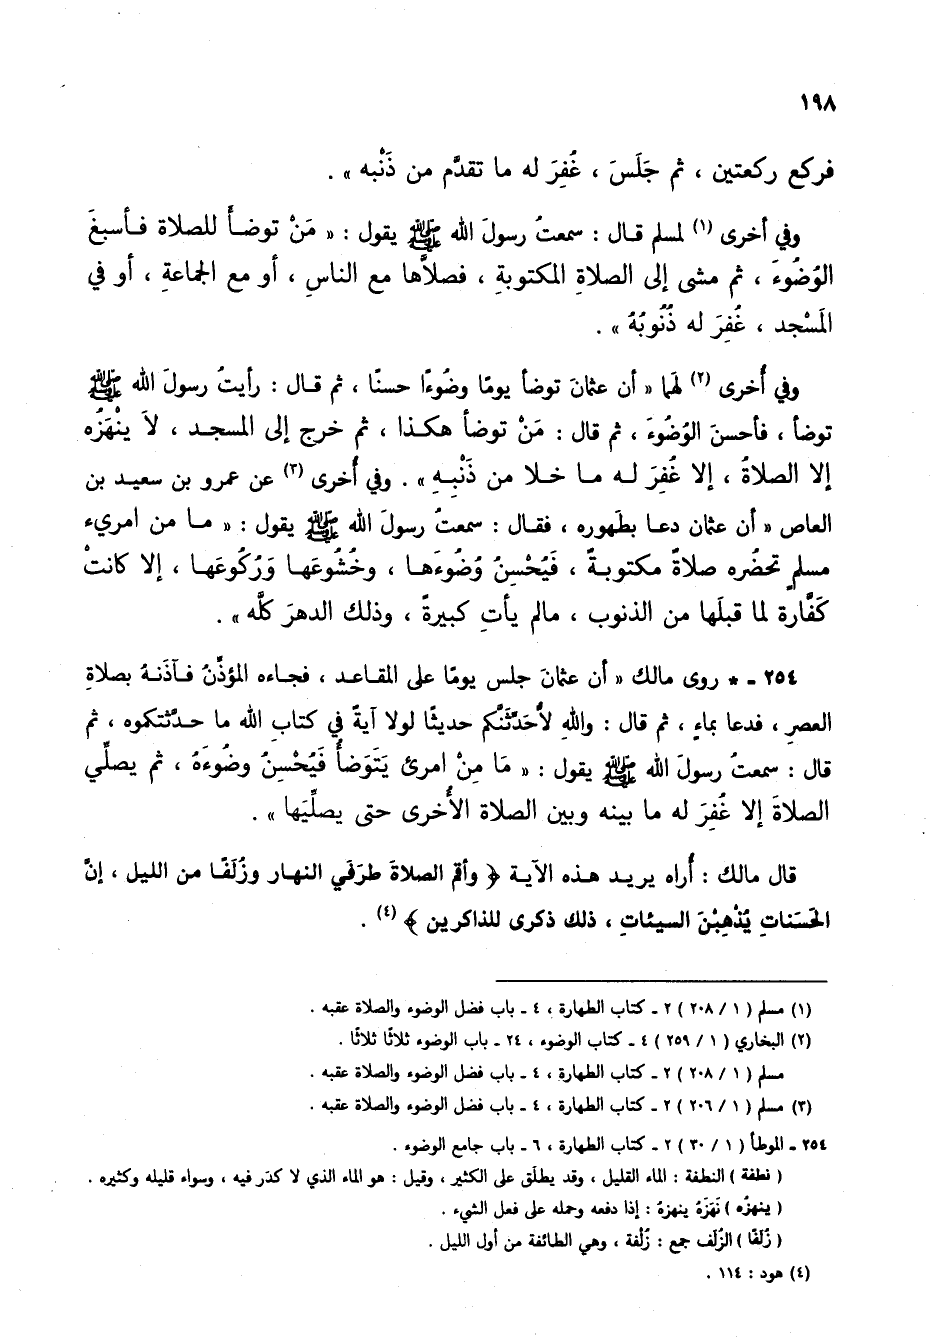 ١٩٨
فركع ركعتين ، ثم جَلَسَ ، غُفِرَ له ما تقدَّم من ذَنْبه » .
وفي أخرى (١) لمسلم قال : سمعتُ رسولَ الله ﷺ يقول : « مَنْ توضأَ للصلاة فأسبغَ
الوُضُوءَ ، ثم مشى إلى الصلاةِ المكتوبةِ ، فصلاَّها مع الناسِ ، أو مع الجماعةِ ، أو في
المَسْجد ، غُفِرَ له ذُنُوبُهُ » .
وفي أُخرى (٢) لهما « أن عثمانَ توضأ يومًا وضُوءًا حسنًا ، ثم قال : رأيتُ رسولَ الله ﷺ
توضأ ، فأحسنَ الوُضُوءَ ، ثم قال : مَنْ توضأ هكذا ، ثم خرج إلى المسجد ، لاَ ينْهَزُه
إلا الصلاةُ ، إلا غُفِرَ له ما خلا من ذَنْبِهِ » . وفي أُخرى (٣) عن عمرو بن سعيد بن
العاص « أن عثمان دعا بطَهوره ، فقال : سمعتُ رسولَ الله ﷺ يقول : « ما من امريء
مسلمٍ تحضُره صلاةٌ مكتوبةٌ ، فَيُحْسِنُ وُضُوءَها ، وخُشُوعَها وَرُكُوعَها ، إلا كانتْ
كَفَّارة لما قبلَها من الذنوب ، مالم يأتِ كبيرةً ، وذلك الدهرَ كلَّه » .
٢٥٤ - * روى مالك « أن عثمانَ جلس يومًا على المقاعد ، فجاءه المؤذِّنُ فآذنهُ بصلاةِ
العصرِ ، فدعا بماءٍ ، ثم قال : واللهِ لأُحَدِّثَنَّكم حديثًا لولا آيةٌ في كتابِ الله ما حدَّثتكموه ، ثم
قال : سمعتُ رسولَ الله ﷺ يقول : « مَا مِنْ امرئ يَتَوَضأُ فَيُحْسِنُ وضُوءَهُ ، ثم يصلِّي
الصلاةَ إلا غُفِرَ له ما بينه وبين الصلاة الأُخرى حتى يصلِّيَها » .
قال مالك : أُراه يريد هذه الآية ﴿ وأقم الصلاةَ طرَفَي النهار وزُلَفًا من الليل ، إنَّ
الحَسَناتِ يُذْهِبْنَ السيئاتِ ، ذلك ذكرى للذاكرين ﴾ (٤) .
(١) مسلم ( ١ / ٢٠٨ ) ٢ - كتاب الطهارة ، ٤ - باب فضل الوضوء والصلاة عقبه .
(٢) البخاري ( ١ / ٢٥٩ ) ٤ - كتاب الوضوء ، ٢٤ - باب الوضوء ثلاثًا ثلاثًا .
مسلم ( ١ / ٢٠٨ ) ٢ - كتاب الطهارة ، ٤ - باب فضل الوضوء والصلاة عقبه .
(٣) مسلم ( ١ / ٢٠٦ ) ٢ - كتاب الطهارة ، ٤ - باب فضل الوضوء والصلاة عقبه .
٢٥٤ - الموطأ ( ١ / ٣٠ ) ٢ - كتاب الطهارة ، ٦ - باب جامع الوضوء .
( نطفة ) النطفة : الماء القليل ، وقد يطلَق على الكثير ، وقيل : هو الماء الذي لا كدَر فيه ، وسواء قليله وكثيره .
( ينهزُه ) نَهَزَهُ ينهزهُ : إذا دفعه وحمله على فعل الشيء .
( زُلَفًا ) الزُلَف جمع : زُلْفة ، وهي الطائفة من أول الليل .
(٤) هود : ١١٤ .